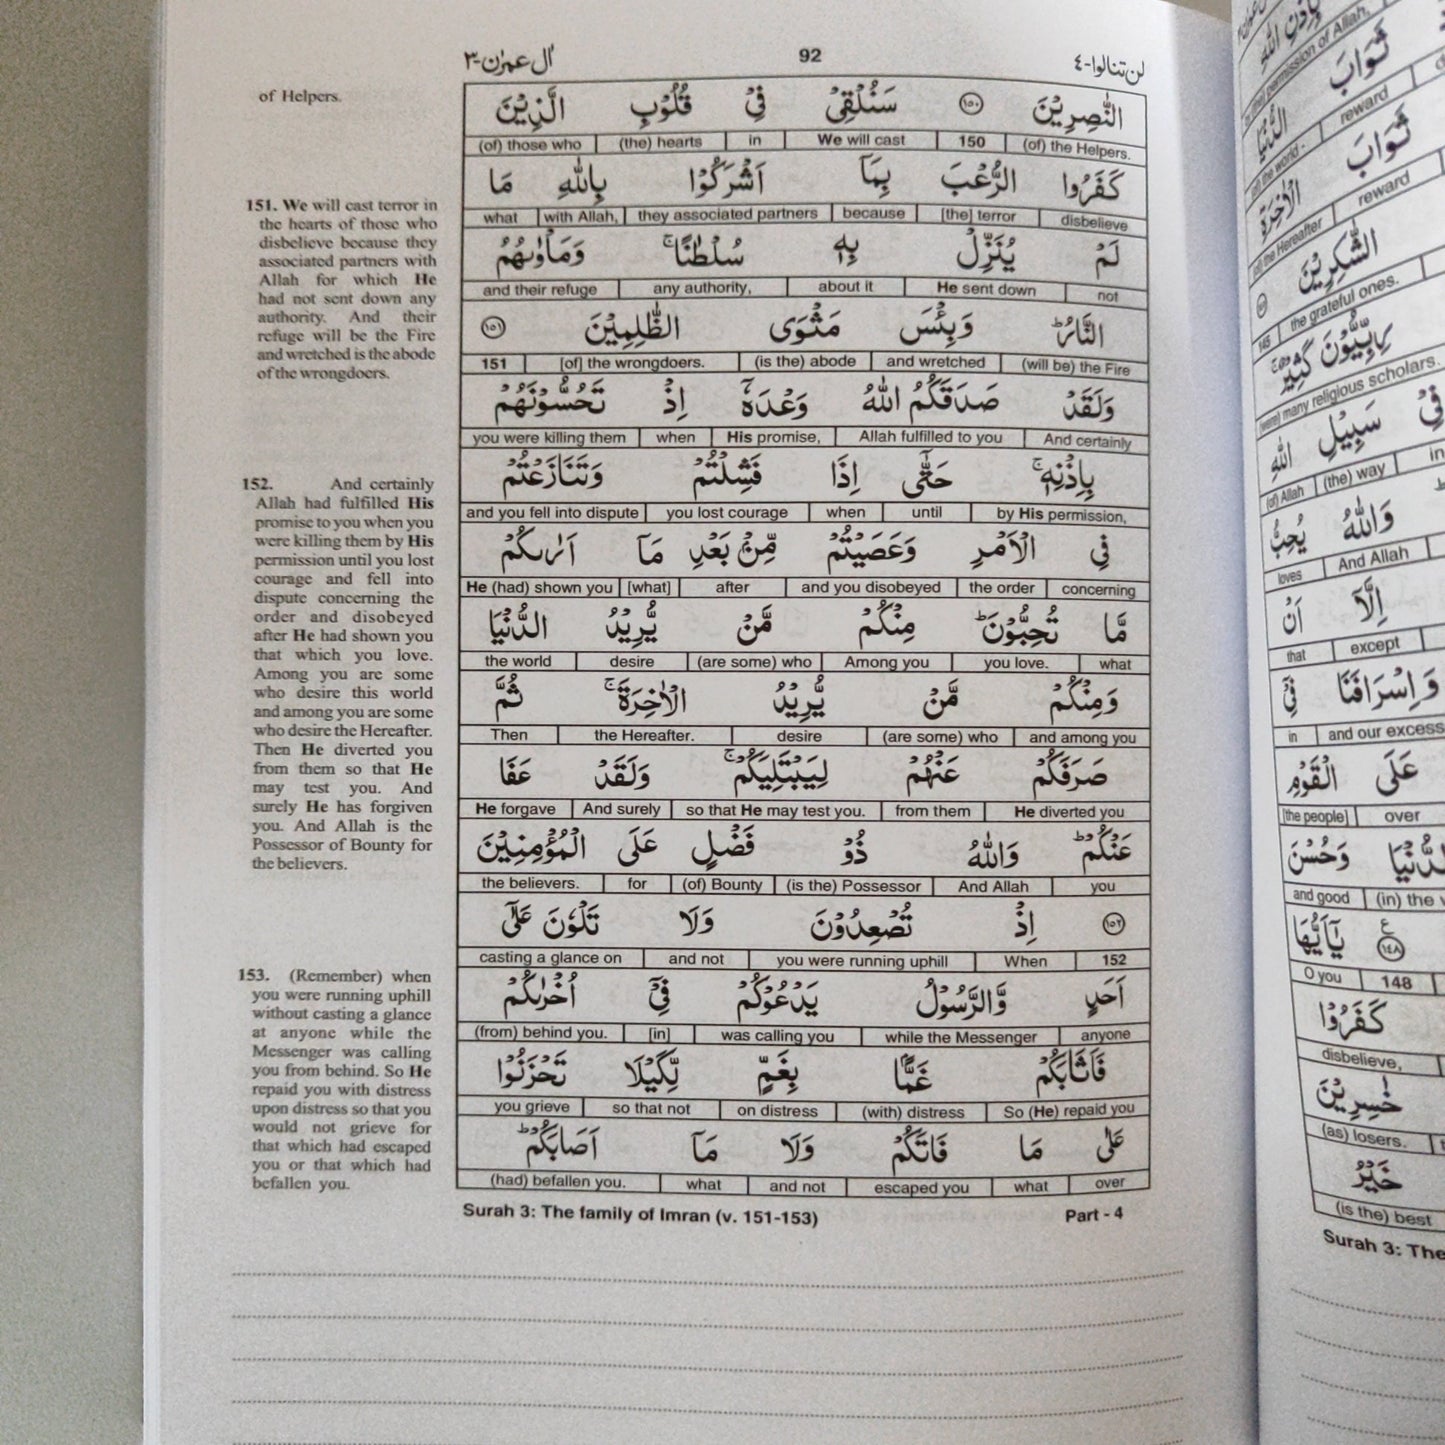 اٰل عمرٰن-٣ 92 لن تنالوا-٤
of Helpers.
151. We will cast terror in
the hearts of those who
disbelieve because they
associated partners with
Allah for which He
had not sent down any
authority. And their
refuge will be the Fire
and wretched is the abode
of the wrongdoers.
152. And certainly
Allah had fulfilled His
promise to you when you
were killing them by His
permission until you lost
courage and fell into
dispute concerning the
order and disobeyed
after He had shown you
that which you love.
Among you are some
who desire this world
and among you are some
who desire the Hereafter.
Then He diverted you
from them so that He
may test you. And
surely He has forgiven
you. And Allah is the
Possessor of Bounty for
the believers.
153. (Remember) when
you were running uphill
without casting a glance
at anyone while the
Messenger was calling
you from behind. So He
repaid you with distress
upon distress so that you
would not grieve for
that which had escaped
you or that which had
befallen you.
النّٰصِرِيْنَ ١٥٠ سَنُلْقِىْ فِىْ قُلُوْبِ الَّذِيْنَ
(of) those who (the) hearts in We will cast 150 (of) the Helpers.
كَفَرُوا الرُّعْبَ بِمَآ اَشْرَكُوْا بِاللّٰهِ مَا
what with Allah, they associated partners because [the] terror disbelieve
لَمْ يُنَزِّلْ بِهٖ سُلْطٰنًا ۚ وَمَاْوٰىهُمُ
and their refuge any authority, about it He sent down not
النَّارُ ؕ وَبِئْسَ مَثْوَى الظّٰلِمِيْنَ ١٥١
151 [of] the wrongdoers. (is the) abode and wretched (will be) the Fire
وَلَقَدْ صَدَقَكُمُ اللّٰهُ وَعْدَهٗٓ اِذْ تَحُسُّوْنَهُمْ
you were killing them when His promise, Allah fulfilled to you And certainly
بِاِذْنِهٖ ۚ حَتّٰٓى اِذَا فَشِلْتُمْ وَتَنَازَعْتُمْ
and you fell into dispute you lost courage when until by His permission,
فِى الْاَمْرِ وَعَصَيْتُمْ مِّنْۢ بَعْدِ مَآ اَرٰىكُمْ
He (had) shown you [what] after and you disobeyed the order concerning
مَّا تُحِبُّوْنَ ؕ مِنْكُمْ مَّنْ يُّرِيْدُ الدُّنْيَا
the world desire (are some) who Among you you love. what
وَمِنْكُمْ مَّنْ يُّرِيْدُ الْاٰخِرَةَ ۚ ثُمَّ
Then the Hereafter. desire (are some) who and among you
صَرَفَكُمْ عَنْهُمْ لِيَبْتَلِيَكُمْ ۚ وَلَقَدْ عَفَا
He forgave And surely so that He may test you. from them He diverted you
عَنْكُمْ ؕ وَاللّٰهُ ذُوْ فَضْلٍ عَلَى الْمُؤْمِنِيْنَ
the believers. for (of) Bounty (is the) Possessor And Allah you
١٥٢ اِذْ تُصْعِدُوْنَ وَلَا تَلْوٗنَ عَلٰٓى
casting a glance on and not you were running uphill When 152
اَحَدٍ وَّالرَّسُوْلُ يَدْعُوْكُمْ فِىْٓ اُخْرٰىكُمْ
(from) behind you. [in] was calling you while the Messenger anyone
فَاَثَابَكُمْ غَمًّاۢ بِغَمٍّ لِّكَيْلَا تَحْزَنُوْا
you grieve so that not on distress (with) distress So (He) repaid you
عَلٰى مَا فَاتَكُمْ وَلَا مَآ اَصَابَكُمْ ؕ
(had) befallen you. what and not escaped you what over
Surah 3: The family of Imran (v. 151-153) Part - 4
بِاِذْنِ اللّٰهِ
permission of Allah,
ثَوَابَ
reward
الدُّنْيَا
the world -
ثَوَابَ
reward
الْاٰخِرَةِ
the Hereafter
الشّٰكِرِيْنَ
145 the grateful ones.
رِبِّيُّوْنَ كَثِيْرٌ ۚ
(were) many religious scholars.
فِىْ سَبِيْلِ اللّٰهِ
(of) Allah (the) way in
وَاللّٰهُ يُحِبُّ
loves And Allah
اِلَّآ اَنْ
that except
وَاِسْرَافَنَا فِىْٓ
in and our excess
عَلَى الْقَوْمِ
[the people] over
الدُّنْيَا وَحُسْنَ
and good (in) the
١٤٨ يٰٓاَيُّهَا
O you 148
كَفَرُوْا
disbelieve,
خٰسِرِيْنَ
(as) losers.
خَيْرُ
(is the) best
Surah 3: The